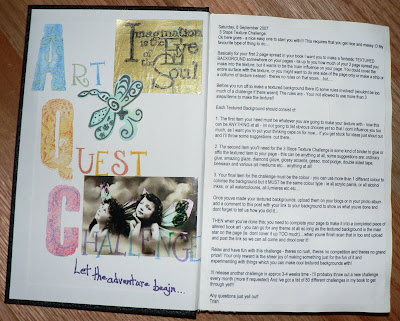 Imagination
is the Eye
of the
Soul
ART
QUEST
CHALLENGE
Let the adventure begin...
Saturday, 8 September 2007
3 Steps Texture Challenge
Ok here goes - a nice easy one to start you with!! This requires that you get inky and messy :O My
favourite type of thing to do...
Basically for your first 2 page spread in your book I want you to make a fantastic TEXTURED
BACKGROUND somewhere on your pages - its up to you how much of your 2 page spread you
make into the texture, but it wants to be the main influence on your page. You could cover the
entire surface with the texture, or you might want to do one side of the page only or make a strip or
a column of texture instead - theres no rules on that score... but...
Before you run off to make a textured background there IS some rules involved (wouldn't be too
much of a challenge if there wasn't) The rules are - Your not allowed to use more than 3
steps/items to make the texture!!
Each Textured Background should consist of:
1. The first item you need must be whatever you are going to make your texture with - now this
can be ANYTHING at all - Im not going to list obvious choices yet so that I dont influence you too
much, as I want you to put your thinking caps on for now... if you get stuck for ideas just shout out
and I'll throw some suggestions out there
2. The second item you'll need for the 3 Steps Texture Challenge is some kind of binder to glue or
affix the textured item to your page - this can be anything at all, some suggestions are: ordinary
glue, amazing glaze, diamond glaze, glossy accents, gesso, mod podge, double sided tape,
beeswax and various uv mediums etc... anything at all
3. Your final item for the challenge must be the colour - you can use more than 1 different colour to
colourise the background but it MUST be the same colour type - ie all acrylic paints, or all alcohol
inks, or all watercolours, oil tumeres etc etc...
Once youve made your textured background, upload them on your blogs or in your photo album,
add a comment to this post with your link to your background to show us what youve done and
dont forget to tell us how you did it...
THEN when you've done this you need to complete your page to make it into a completed piece of
altered book art - you can go for any theme at all as long as the textured background is the main
star on the page (ie. dont cover it up TOO much)... when you're finish scan that in too and upload
and post the link so we can all come and drool over it!
Relax and have fun with this challenge - theres no rush, theres no competition and theres no grand
prize!! Your only reward is the sheer joy of making something just for the fun of it and
experimenting with things which you can make cool textured backgrounds with!
I'll release another challenge in approx 3-4 weeks time - I'll probably throw out a new challenge
every month (more if requested!) And Ive got a list of 80 different challenges in my book to get
through yet!!!
Any questions just yell out!
Trish